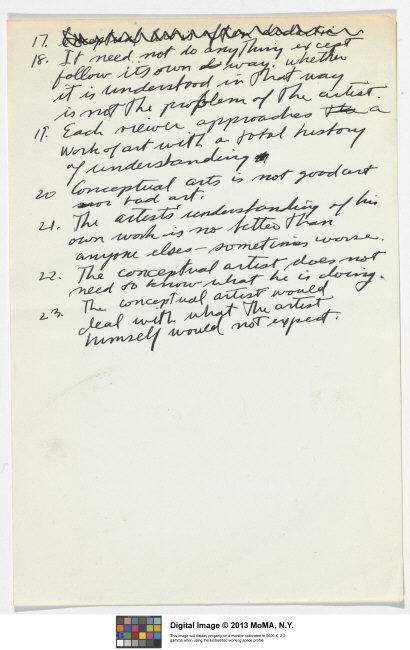 17. Conceptual art is often didactic
18. It need not do anything except
follow its own way. whether
it is understood in that way
is not the problem of the artist
19. Each viewer approaches the a
work of art with a total history
of understanding
20 Conceptual arts is not good art
nor bad art.
21. The artists understanding of his
own work is no better than
anyone elses – sometimes worse.
22. The conceptual artist does not
need to know what he is doing.
23. The conceptual artist would
deal with what the artist
himself would not expect.
Digital Image © 2013 MoMA, N.Y.
This image will display properly on a monitor calibrated to 5500 K, 2.2
gamma when using the embedded working space profile